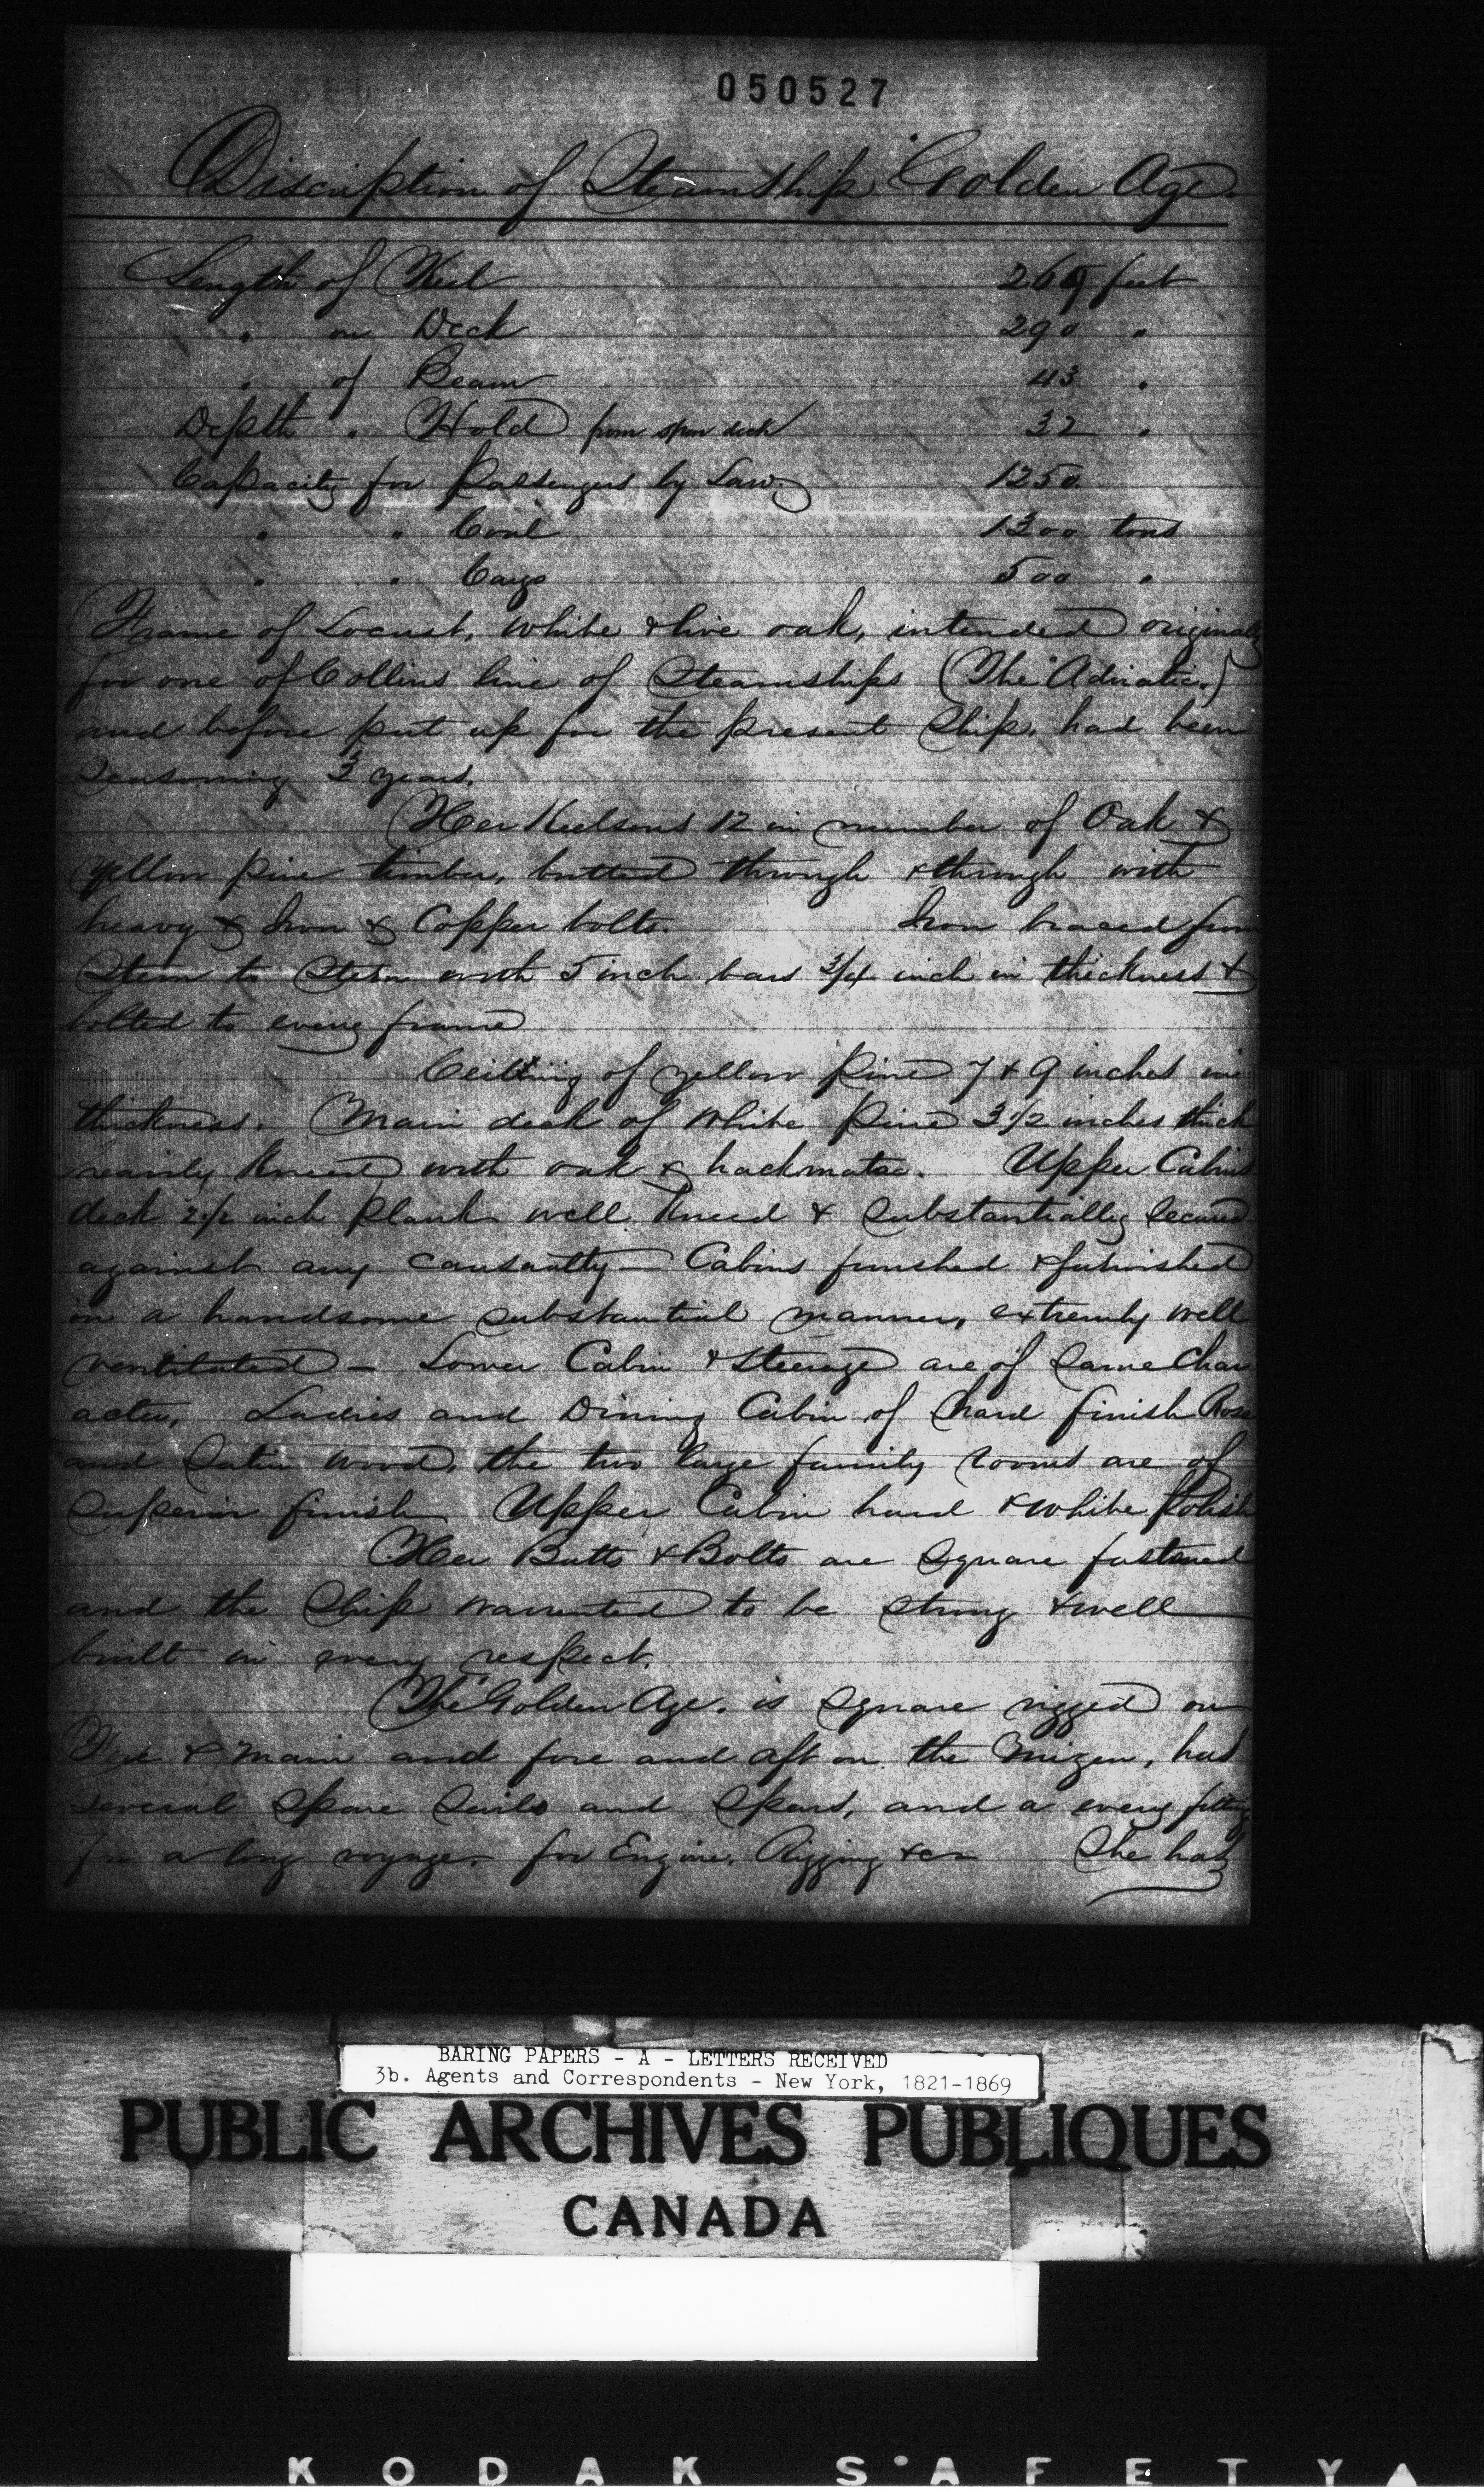 050527
Discription of Steamship "Golden Age."
Length of Keel 269 feet
" on Deck 290 "
" of Beam 43 "
Depth " Hold from spar deck 32 "
Capacity for Passengers by Law 1250
" " Coal 1300 tons
" " Cargo 500 "
Frame of Locust, white & live oak, intended originally
for one of Collins line of Steamships (The "Adriatic")
and before put up for the present Ship, had been
Seasoning 3 years.
Her Keelsons 12 in number of Oak &
yellow pine timber, butted through & through with
heavy & Iron & Copper bolts. Iron braced from
Stem to Stern with 5 inch bars 3/4 inch in thickness &
bolted to every frame
Ceilling of yellow pine 7 & 9 inches in
thickness. Main deck of White Pine 3 1/2 inches thick
heavily Kneed with oak & hackmatac. Upper Cabin
deck 2 1/2 inch plank well Kneed & Substantially Secured
against any causautty — Cabins finished & furnished
in a handsome substantial manner, extremly well
ventilated — Lower Cabin & Steerage are of Same Char
acter, Ladies and Dining Cabin of hard finish Rose
and Satin wood, the two large family rooms are of
Superior finish Upper Cabin hard & white polish
Her Butts & Bolts are Square fastened
and the Ship warrented to be strong & well
built in every respect.
The "Golden Age" is Square rigged on
Fore & Main and fore and aft on the Mizen, has
several Spare Sails and Spars, and a every fitting
for a long voyage, for Engine, Rigging &c — She has
BARING PAPERS - A - LETTERS RECEIVED
3b. Agents and Correspondents - New York, 1821-1869
PUBLIC ARCHIVES PUBLIQUES
CANADA
KODAK SAFETY